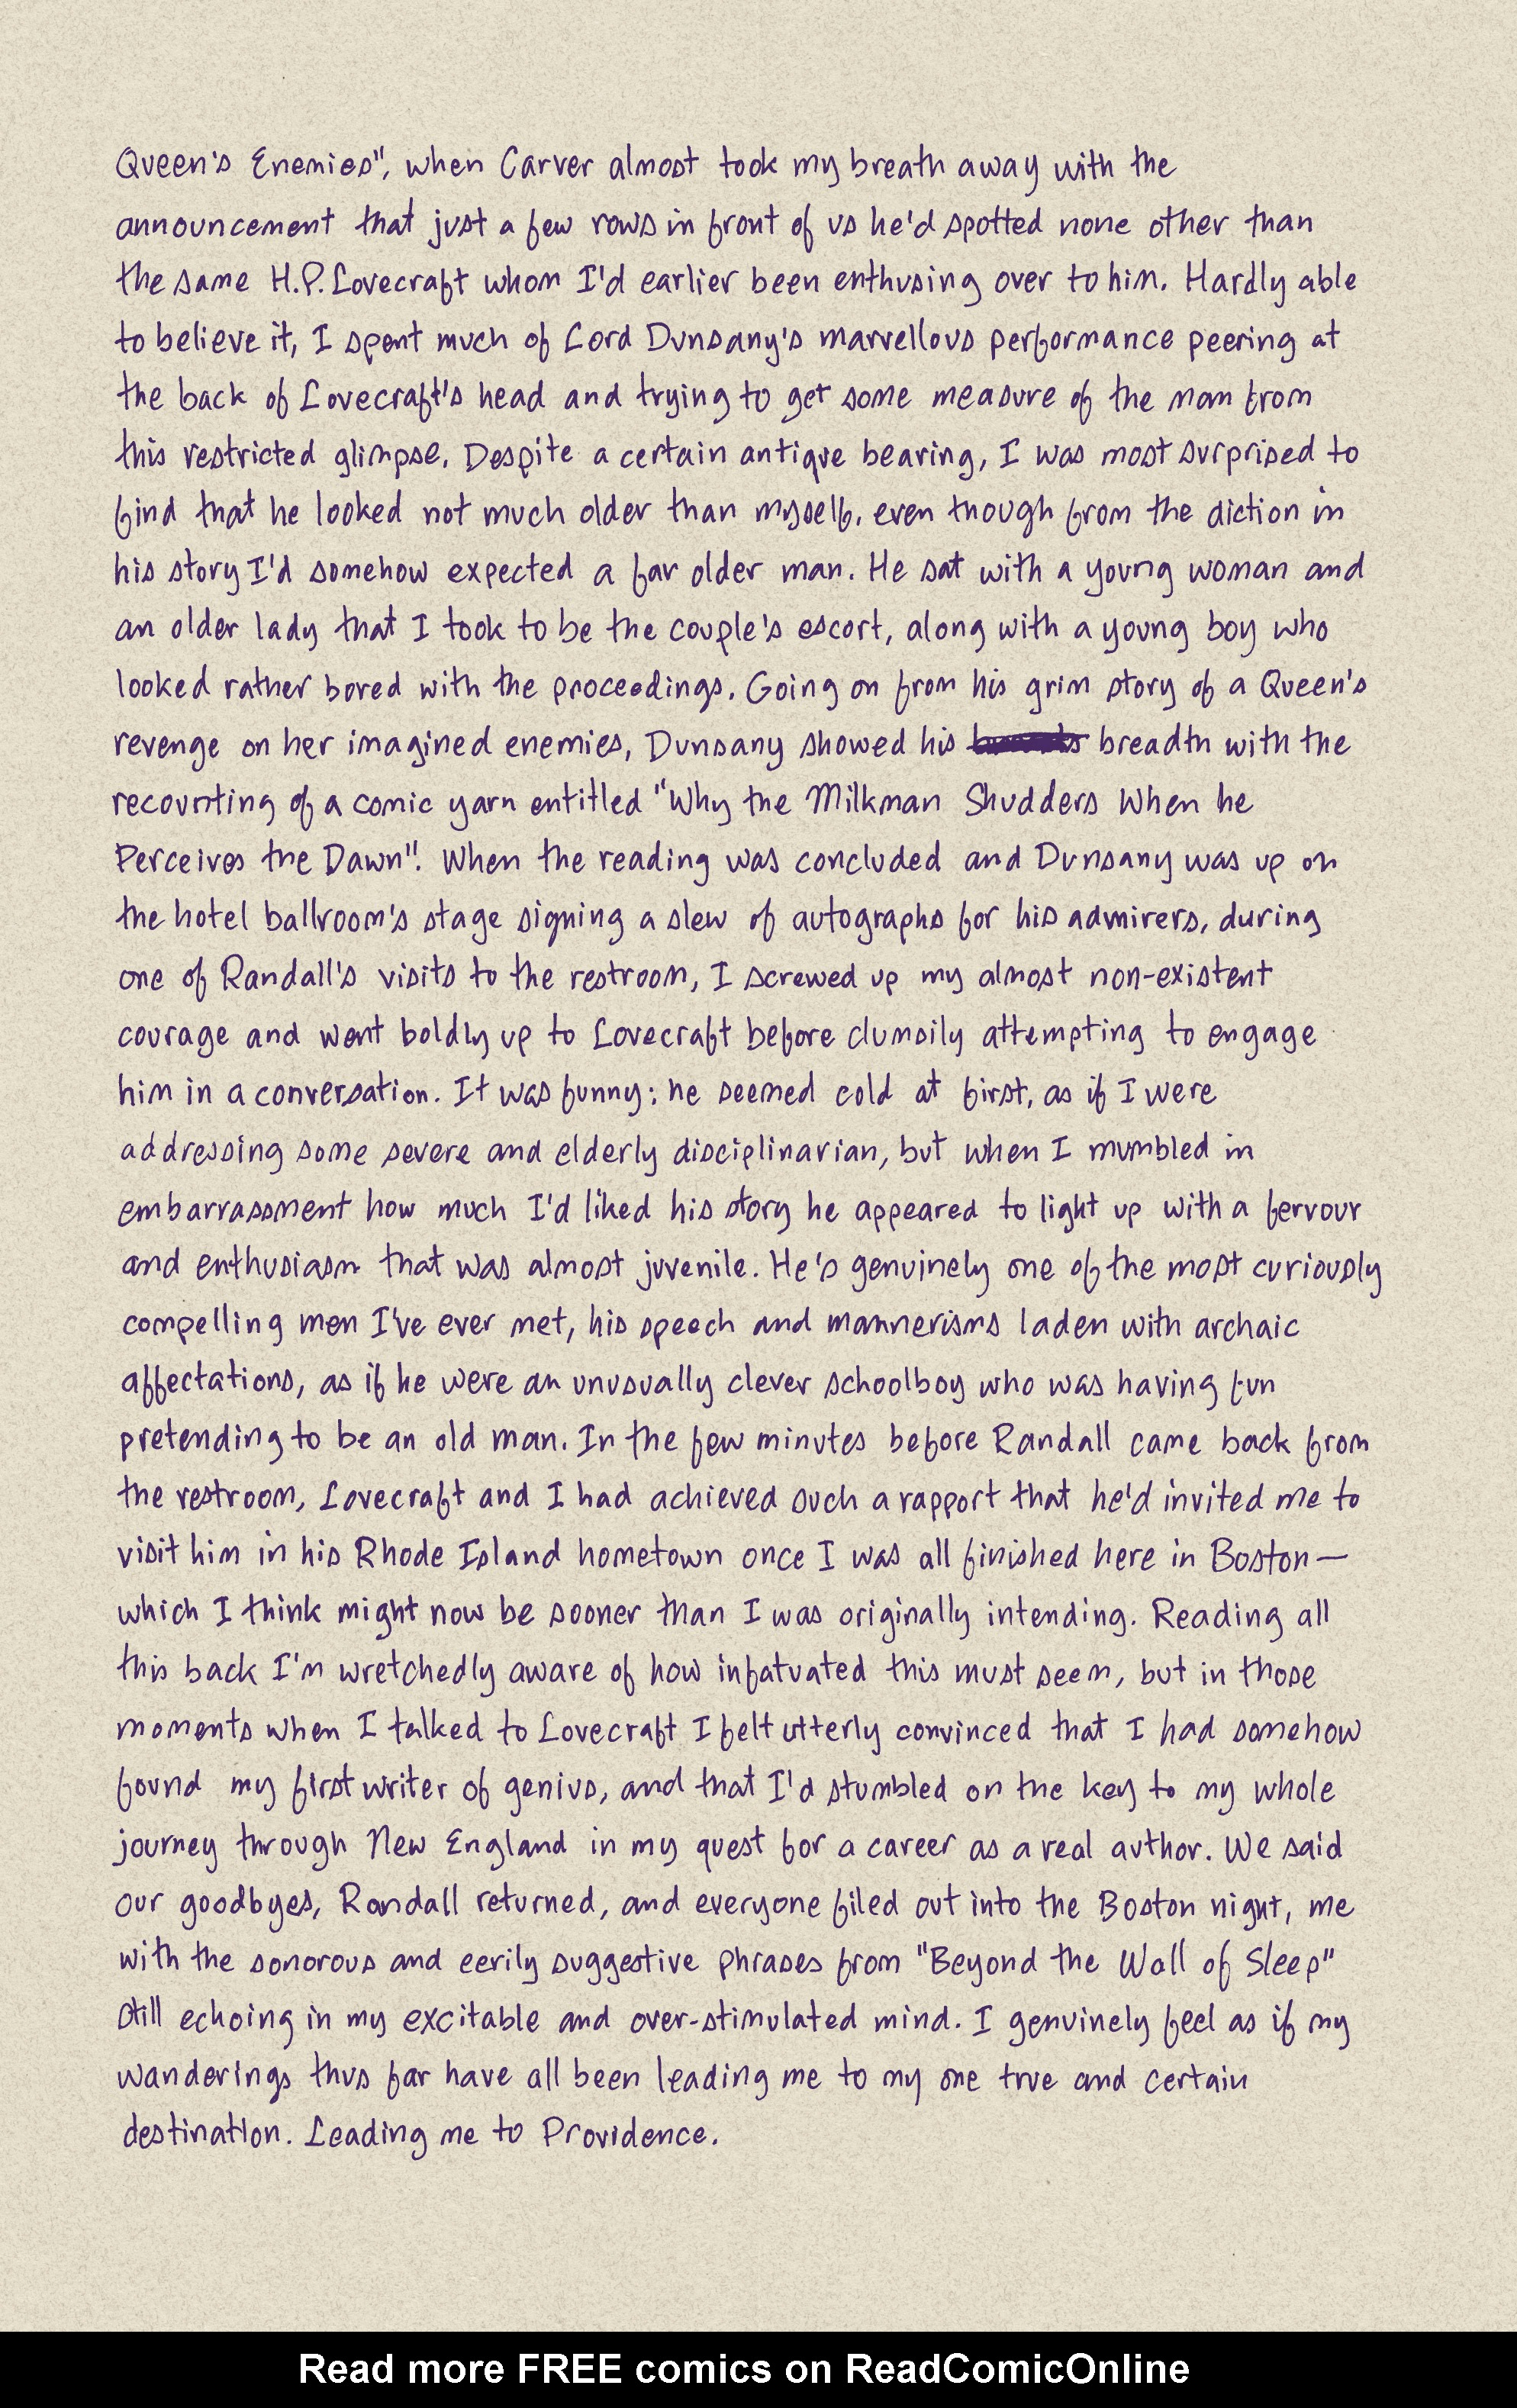 Queen's Enemies", when Carver almost took my breath away with the
announcement that just a few rows in front of us he'd spotted none other than
the same H.P. Lovecraft whom I'd earlier been enthusing over to him. Hardly able
to believe it, I spent much of Lord Dunsany's marvellous performance peering at
the back of Lovecraft's head and trying to get some measure of the man from
this restricted glimpse. Despite a certain antique bearing, I was most surprised to
find that he looked not much older than myself, even though from the diction in
his story I'd somehow expected a far older man. He sat with a young woman and
an older lady that I took to be the couple's escort, along with a young boy who
looked rather bored with the proceedings. Going on from his grim story of a Queen's
revenge on her imagined enemies, Dunsany showed his breadth with the
recounting of a comic yarn entitled "Why the Milkman Shudders When he
Perceives the Dawn". When the reading was concluded and Dunsany was up on
the hotel ballroom's stage signing a slew of autographs for his admirers, during
one of Randall's visits to the restroom, I screwed up my almost non-existent
courage and went boldly up to Lovecraft before clumsily attempting to engage
him in a conversation. It was funny: he seemed cold at first, as if I were
addressing some severe and elderly disciplinarian, but when I mumbled in
embarrassment how much I'd liked his story he appeared to light up with a fervour
and enthusiasm that was almost juvenile. He's genuinely one of the most curiously
compelling men I've ever met, his speech and mannerisms laden with archaic
affectations, as if he were an unusually clever schoolboy who was having fun
pretending to be an old man. In the few minutes before Randall came back from
the restroom, Lovecraft and I had achieved such a rapport that he'd invited me to
visit him in his Rhode Island hometown once I was all finished here in Boston—
which I think might now be sooner than I was originally intending. Reading all
this back I'm wretchedly aware of how infatuated this must seem, but in those
moments when I talked to Lovecraft I felt utterly convinced that I had somehow
found my first writer of genius, and that I'd stumbled on the key to my whole
journey through New England in my quest for a career as a real author. We said
our goodbyes, Randall returned, and everyone filed out into the Boston night, me
with the sonorous and eerily suggestive phrases from "Beyond the Wall of Sleep"
still echoing in my excitable and over-stimulated mind. I genuinely feel as if my
wanderings thus far have all been leading me to my one true and certain
destination. Leading me to Providence.
Read more FREE comics on ReadComicOnline